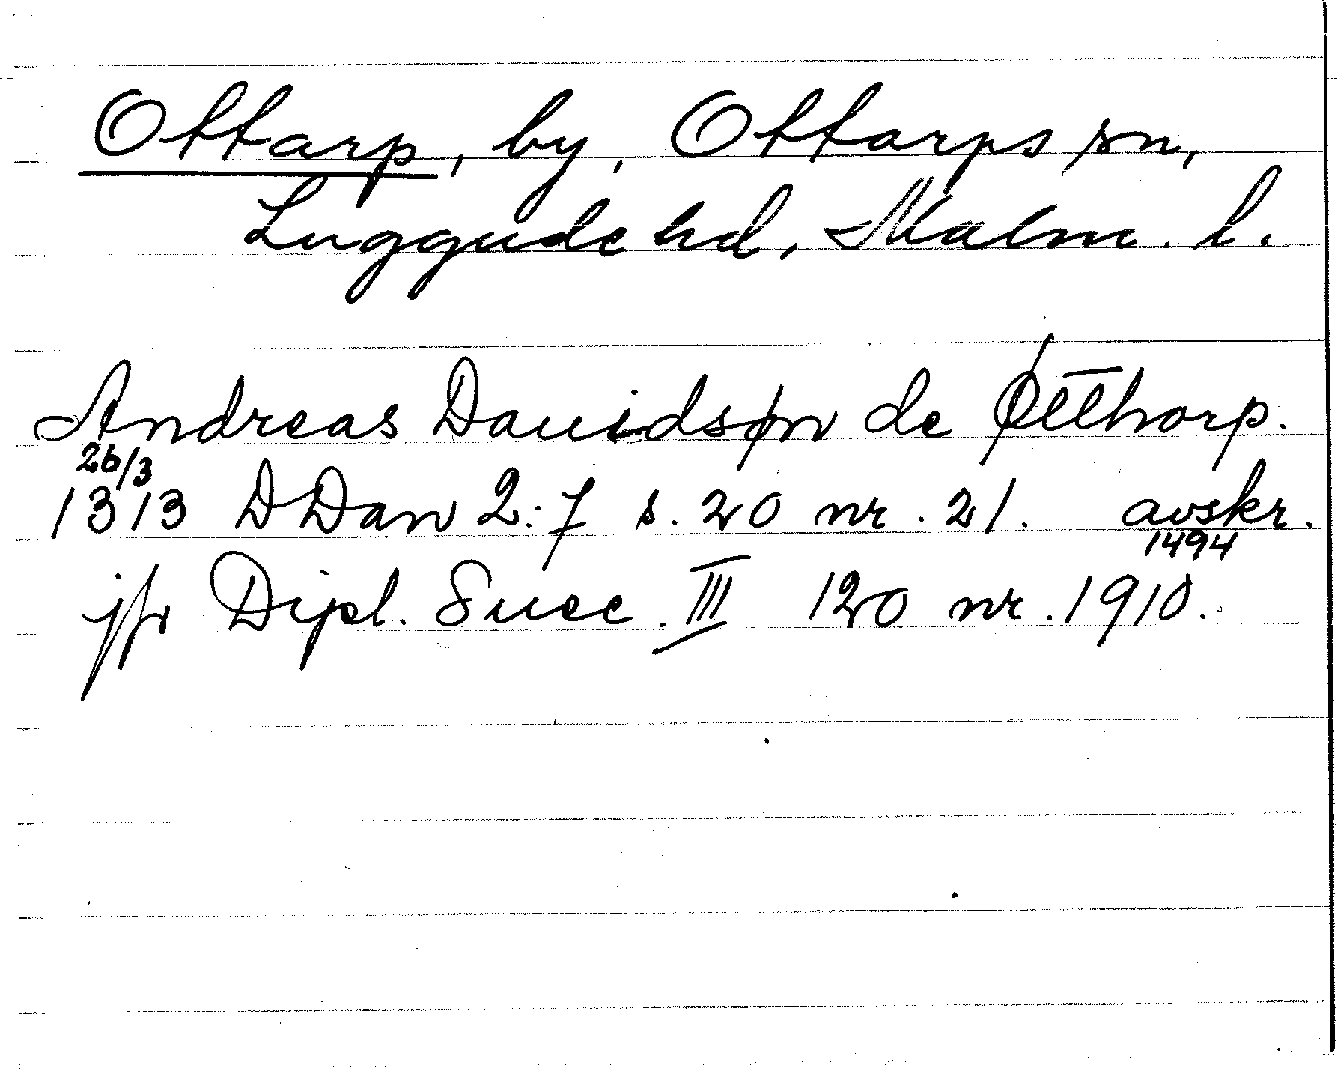 Ottarp, by, Ottarps sn,
Luggude hd, Malm. l.
Andreas Dauidsøn de Øtthorp.
26/3
1313 DDan 2:7 s. 20 nr. 21. avskr.
1494
jfr Dipl. Suec. III 120 nr. 1910.